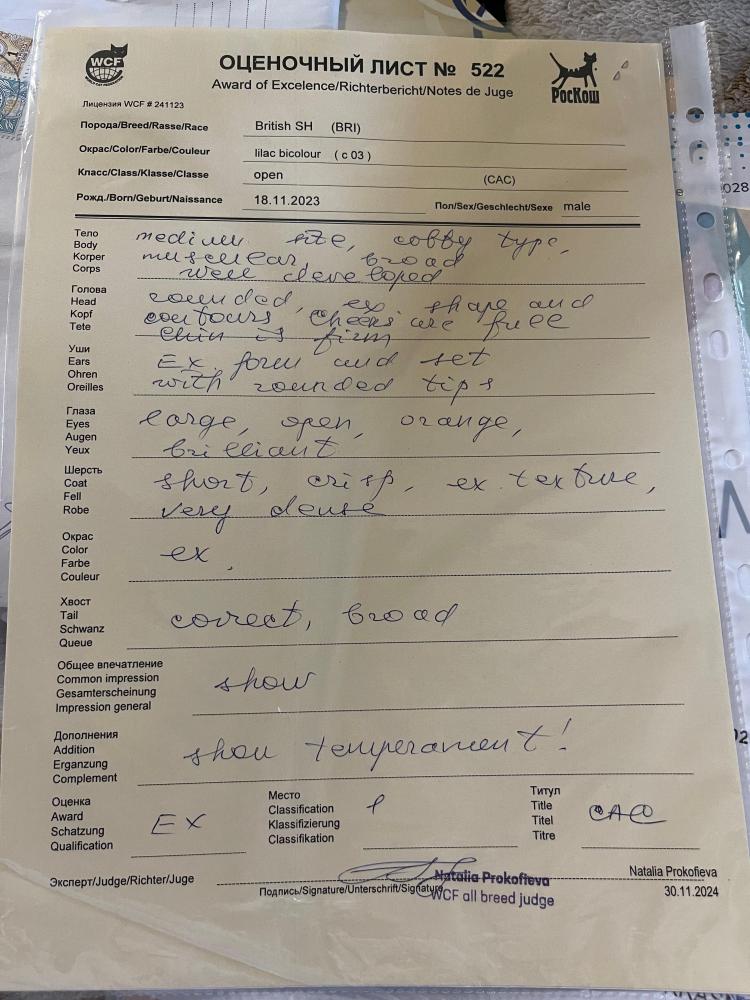 WCF
WORLD CAT FEDERATION
ОЦЕНОЧНЫЙ ЛИСТ № 522
Award of Excelence/Richterbericht/Notes de Juge
РосКош
Лицензия WCF # 241123
Порода/Breed/Rasse/Race British SH (BRI)
Окрас/Color/Farbe/Couleur lilac bicolour ( c 03 )
Класс/Class/Klasse/Classe open (CAC)
Рожд./Born/Geburt/Naissance 18.11.2023 Пол/Sex/Geschlecht/Sexe male
Тело
Body
Korper
Corps
medium size, cobby type,
muscular, broad
well developed
Голова
Head
Kopf
Tete
rounded, ex shape and
contours, cheeks are full
chin is firm
Уши
Ears
Ohren
Oreilles
Ex. form and set
with rounded tips
Глаза
Eyes
Augen
Yeux
large, open, orange,
brilliant
Шерсть
Coat
Fell
Robe
short, crisp, ex. texture,
very dense
Окрас
Color
Farbe
Couleur
ex.
Хвост
Tail
Schwanz
Queue
correct, broad
Общее впечатление
Common impression
Gesamterscheinung
Impression general
show
Дополнения
Addition
Erganzung
Complement
show temperament!
Оценка
Award
Schatzung
Qualification
EX
Место
Classification
Klassifizierung
Classifikation
1
Титул
Title
Titel
Titre
CAC
Эксперт/Judge/Richter/Juge
Natalia Prokofieva
Подпись/Signature/Unterschrift/Signature
30.11.2024
Natalia Prokofieva
WCF all breed judge
028